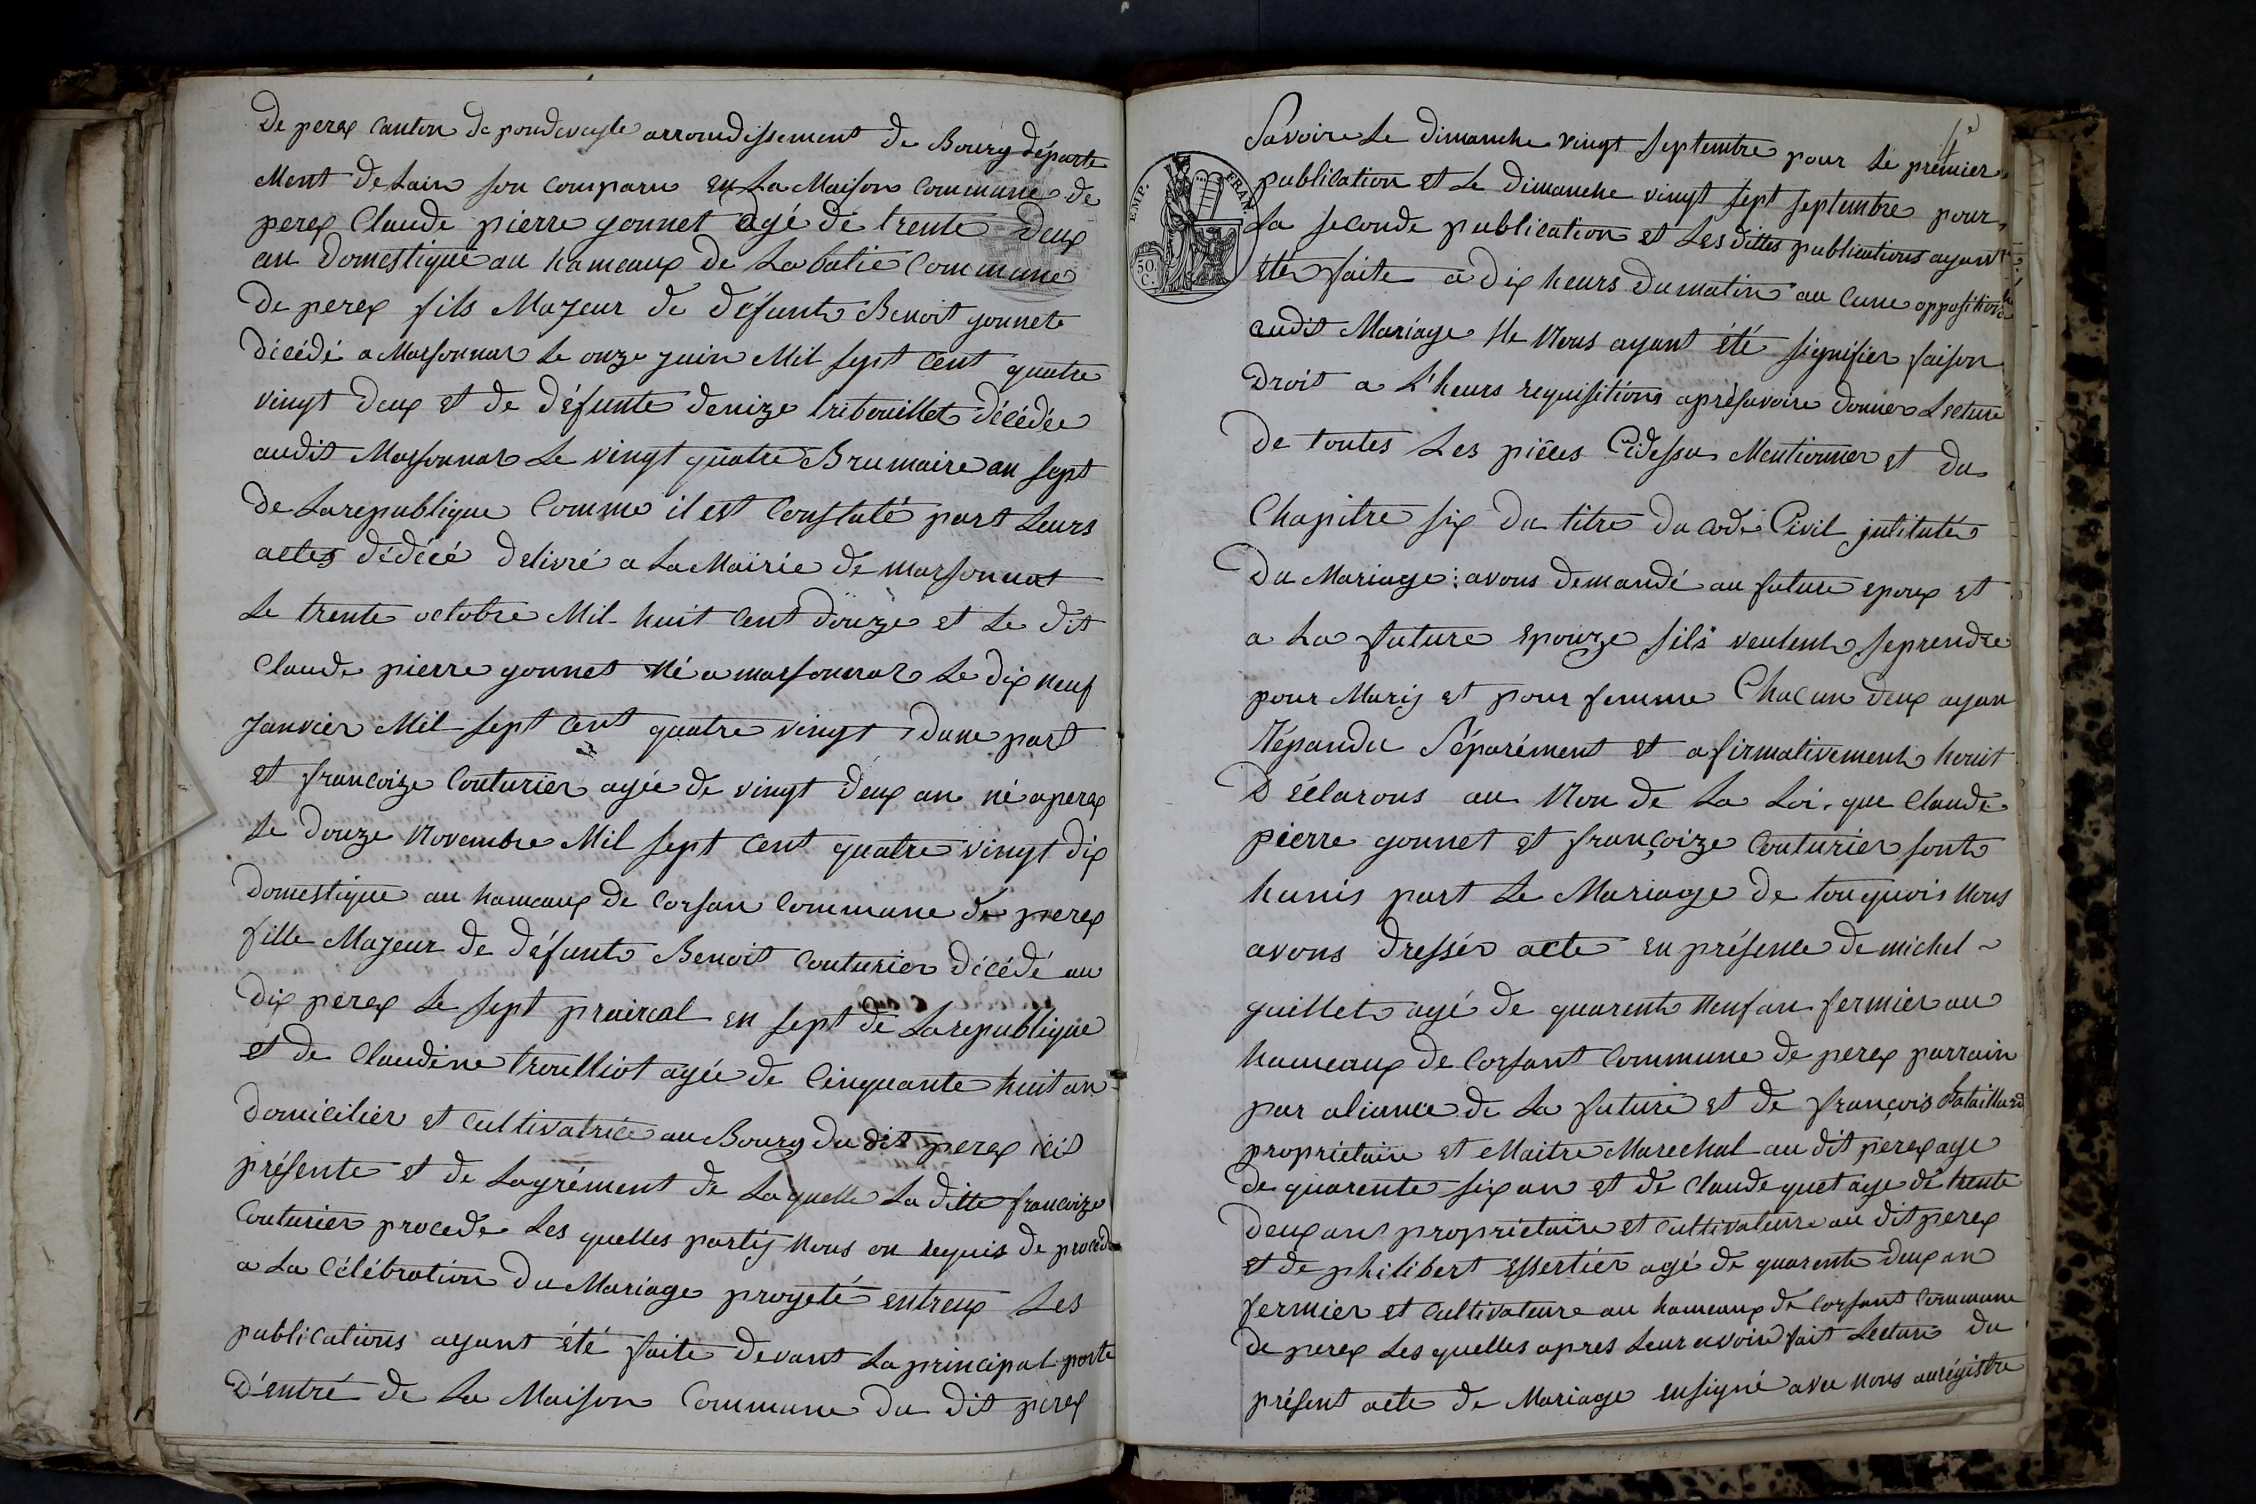 De perex Canton de pondeveyle arrondissement de Bourg départe
Ment de Lain son comparu en La Maison Commune de
perex Claude pierre gonnet agé de trente Deux
an Domestique au hameaux de La batie Commune
De perex fils Majeur de défunt Benoit gonnet
décédé a Marsonnas Le onze juin Mil sept Cent quatre
vingt deux et de défunte denize tribouillet décédée
audit Marsonnas Le vingt quatre Brumaire an sept
de Larepublique Comme il est Constaté part Leurs
actes dédécé delivré a La Mairie de marsonnat
Le trente octobre Mil huit Cent douze et Le dit
Claude pierre gonnet Né a marsonnas Le dix neuf
Janvier Mil sept Cent quatre vingt, dune part
et francoize Couturier agée de vingt deux an né a perex
Le douze Novembre Mil sept Cent quatre vingt dix
domestique au hameaux de Corsan Commune de perex
fille Majeur de défunt Benoit Couturier décédé au
dix perex Le sept praireal en sept de Larepublique
et de Claudine trouilliot agée de Cinquante huit an
domicilier et Cultivatrice au Bourg du dit perex icit
présente et de Lagrément de Laquelle La ditte francoize
Couturier procede Les quelles partis Nous on requis de procede
a La Célébration du Mariage projeté entreux Les
publications ayant été faite devant La principal porte
D'entré de La Maison Commune du dit perex
Savoire Le dimanche vingt septembre pour Le premier
EMP. FRAN.
50.
C.
publication et Le Dimanche vingt sept septembre pour
La seconde publication et Les dittes publications ayant
été faite a dix heurs Du matin au Cune opposition
audit Mariage Ne Nous ayant été signifier faison
Droit a L'heurs requisitions aprésavoire donner Lecture
De toutes Les piéces Cidessu Mentionner et du
Chapitre six Du titre du code Civil jntitulé
Du Mariage : avons demandé au future epoux et
a La future epouze sils veulent seprendre
pour Marij et pour femme Chacun deux ayan
Répandu Séparément et afirmativement houit
Déclarons au Non de La Loi. que Claude
pierre gonnet et françoize Couturier sont
hunis part Le Mariage de touquois Nous
avons dressér acte en présence de michel ~
guillet agé de quarent Neuf an fermier au
hameaux de Corsant Commune de perex parrain
par aliance de La future et de françois Bataillard
proprietaire et Maitre Marechal au dit perex age
De quarente six an et de Claude guet age de trente
Deux ans proprietaire et Cultivateure au dit perex
et de philibert Essertier agé de quarente deux an
fermier et Cultivateure au hameaux de Corsant Commune
De perex Les quelles apres Leur avoire fait Lecture du
présent acte de Mariage ensigné avec nous aurégistre